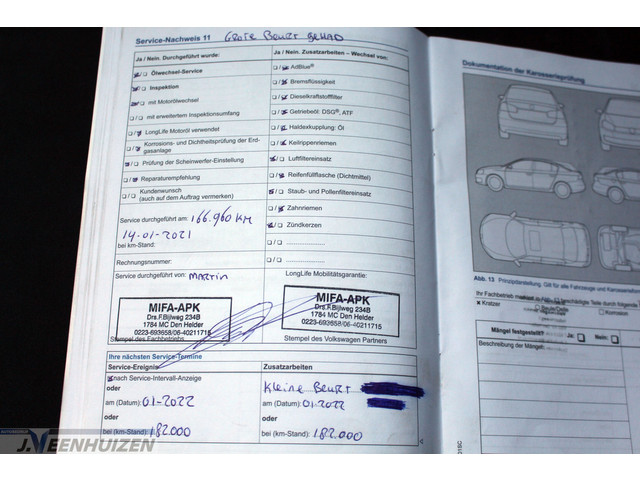 Service-Nachweis 11 GROTE BEURT GEHAD
Ja / Nein. Durchgeführt wurde:
Ölwechsel-Service
Inspektion
mit Motorölwechsel
mit erweitertem Inspektionsumfang
LongLife Motoröl verwendet
Korrosions- und Dichtheitsprüfung der Erdgasanlage
Prüfung der Scheinwerfer-Einstellung
Reparaturempfehlung
Kundenwunsch
(auch auf dem Auftrag vermerken)
Service durchgeführt am: 166.960 KM
14-01-2021
bei km-Stand:
Rechnungsnummer:
Service durchgeführt von: MARTIN
MIFA-APK
Drs.F.Bijlweg 234B
1784 MC Den Helder
0223-693658/06-40211715
Stempel des Fachbetriebs
Ja / Nein. Zusatzarbeiten – Wechsel von:
AdBlue®
Bremsflüssigkeit
Dieselkraftstofffilter
Getriebeöl: DSG®, ATF
Haldexkupplung: Öl
Keilrippenriemen
Luftfiltereinsatz
Reifenfüllflasche (Dichtmittel)
Staub- und Pollenfiltereinsatz
Zahnriemen
Zündkerzen
LongLife Mobilitätsgarantie:
MIFA-APK
Drs.F.Bijlweg 234B
1784 MC Den Helder
0223-693658/06-40211715
Stempel des Volkswagen Partners
Ihre nächsten Service-Termine
Service-Ereignis
nach Service-Intervall-Anzeige
oder
am (Datum): 01-2022
oder
bei (km-Stand): 182.000
Zusatzarbeiten
Kleine Beurt
am (Datum): 01-2022
oder
bei (km-Stand): 182.000
Dokumentation der Karosserieprüfung
Abb. 13 Prinzipdarstellung: Gilt für alle Fahrzeuge und Karosserieform
Ihr Fachbetrieb markiert in Abb. 13 beschädigte Teile durch folgende
Kratzer
Beule/Delle
Korrosion
Mängel festgestellt? Ja Nein
Beschreibung der Mängel:
J.VEENHUIZEN